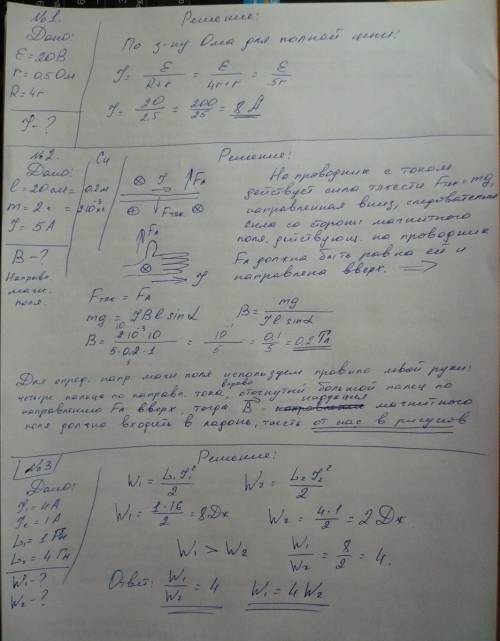 №1.
Дано:
ε = 20В
r = 0.5 Ом
R = 4r
I - ?
Решение:
По з-ну Ома для полной цепи:
I = ε/(R+r) = ε/(4r+r) = ε/5r
I = 20/2.5 = 200/25 = 8 А
№2.
Дано:
Си
l = 20 см = 0.2 м
m = 2г = 2·10⁻³
I = 5А
B - ?
Направл.
магн.
поля.
Решение:
I Fл
Fтяж
Fл
I
На проводник с током
действует сила тяжести Fтяж = mg,
направленная вниз, следовательно
сила со стороны магнитного
поля, действующ. на проводник
Fл должна быть равна ей и
направлена вверх. ⇒
Fтяж = Fл
mg = IBl sinα B = mg/(Il sinα)
B = 2·10⁻³·10/(5·0,2·1) = 10⁻¹/5 = 0.1/5 = 0.2 Тл
Для опред. напр. магн. поля используем правило левой руки:
четыре пальца по направл. тока, вправо, отогнутый большой палец по
направлению Fл вверх, тогда B - индукция магнитного
поля должна входить в ладонь, то есть от нас в рисунок
№3
Дано:
I₁ = 4А
I₂ = 1А
L₁ = 1 Гн
L₂ = 4 Гн
W₁ - ?
W₂ - ?
Решение:
W₁ = L₁I₁²/2 W₂ = L₂I₂²/2
W₁ = 1·16/2 = 8Дж W₂ = 4·1/2 = 2 Дж
W₁ > W₂ W₁/W₂ = 8/2 = 4.
Ответ: W₁/W₂ = 4 W₁ = 4W₂